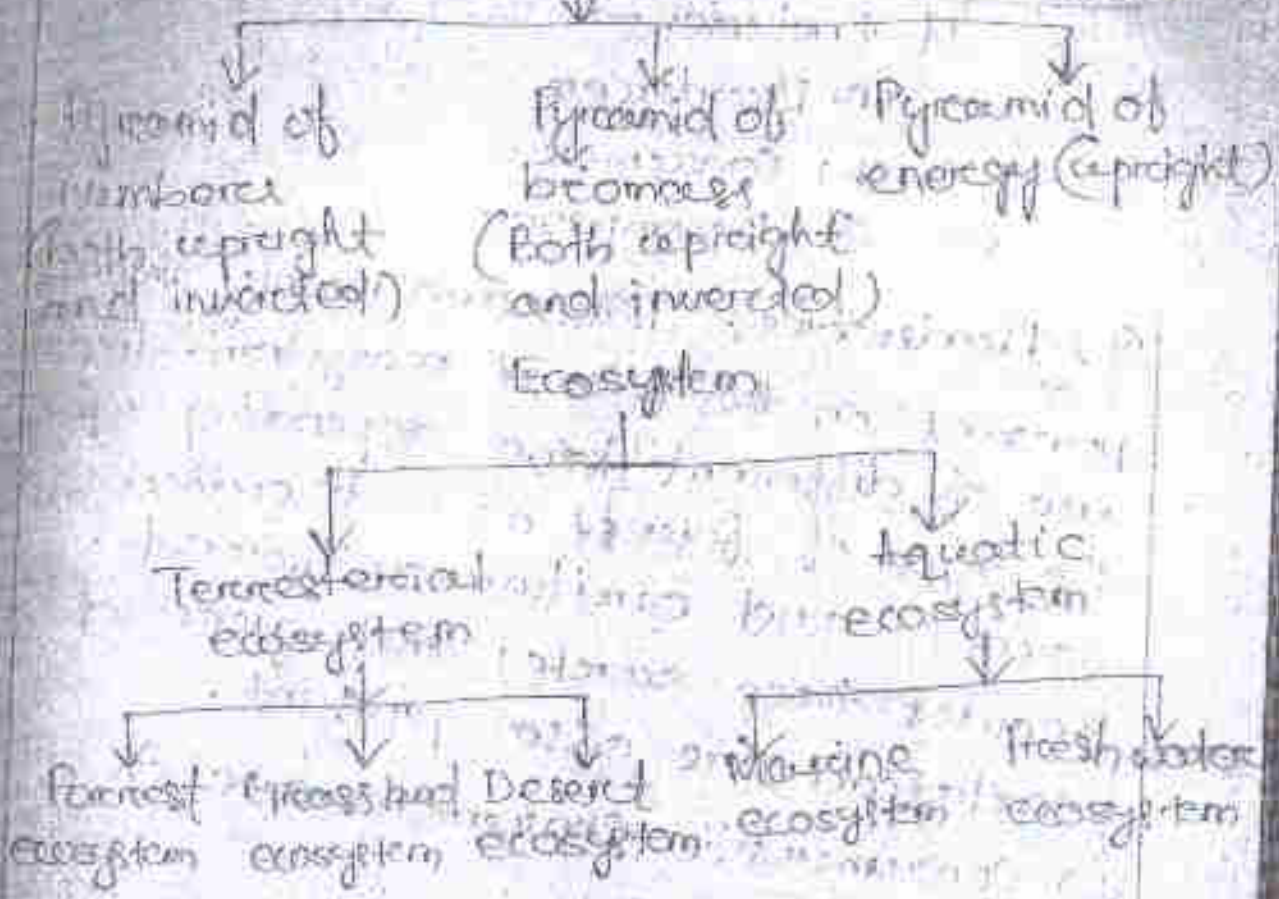 Pyramid of
numbers
(both upright
and inverted)
Pyramid of
biomass
(Both upright
and inverted)
Pyramid of
energy (upright)
Ecosystem
Terresterial
ecosystem
Aquatic
ecosystem
Forrest
ecosystem
Grassland
ecosystem
Desert
ecosystem
Marine
ecosystem
Fresh water
ecosystem